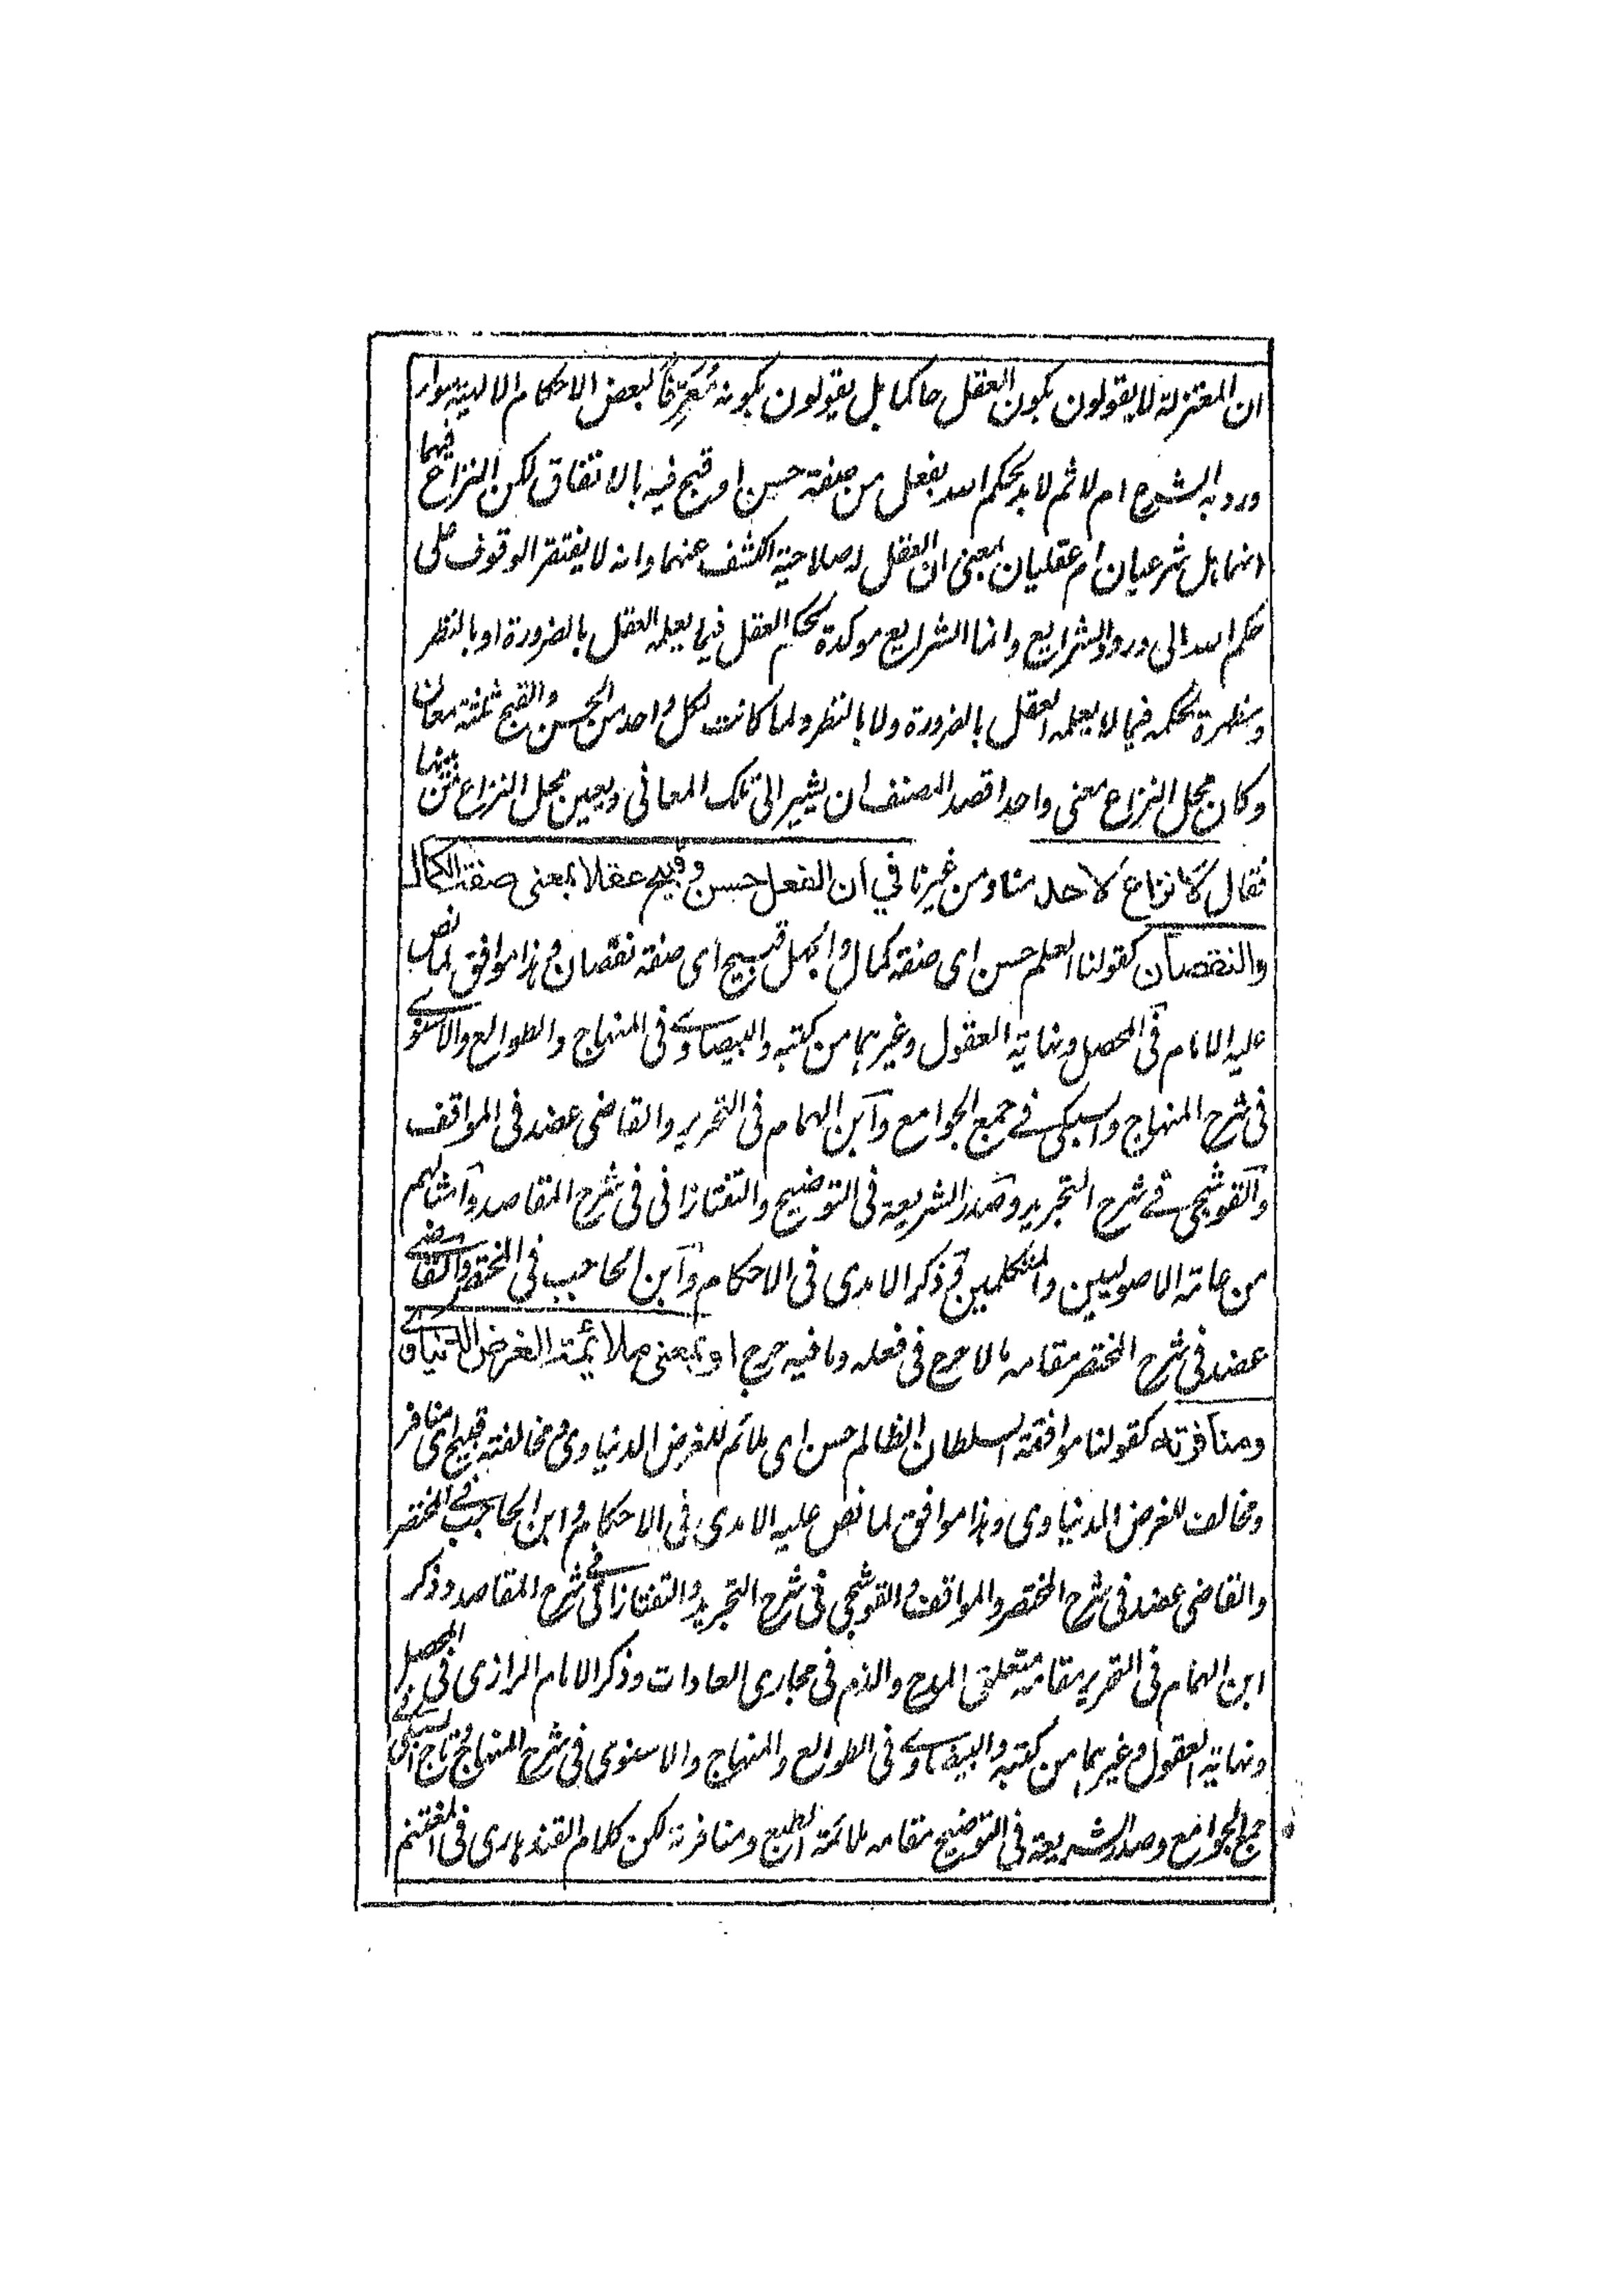 ان المعتزلة لا يقولون بكون العقل حاكما بل يقولون بكونه مُعَرِّفًا لبعض الاحكام الالهية سواء
ورد به الشرع ام لا ثم لا بد لحكم الله بفعل من صفة حسن او قبح فيه بالاتفاق لكن النزاع فيهما
انهما هل شرعيان ام عقليان بمعنى ان العقل له صلاحية الكشف عنهما وانه لا يفتقر الوقوف على
حكم الله الى ورود الشرايع وانما الشرايع موكدة لحكم العقل فيما يعلمه العقل بالضرورة او بالنظر
ومظهرة لحكمه فيما لا يعلمه العقل بالضرورة ولا بالنظر ولما كانت لكل واحد من الحسن والقبح ثلثة معان
وكان محل النزاع معنى واحدا قصد المصنف ان يشير الى تلك المعانى ويعين محل النزاع من بينها
فقال لا نزاع لاحد منا ومن غيرنا في ان الفعل حسن وقبيح عقلا بمعنى صفة الكمال
والنقصان كقولنا العلم حسن اى صفة كمال والجهل قبيح اى صفة نقصان وهذا موافق لما نص
عليه الامام فى المحصل ونهاية العقول وغيرهما من كتبه والبيضاوى فى المنهاج والطوالع والاسنوى
فى شرح المنهاج والسبكى فى جمع الجوامع وابن الهمام فى التحرير والقاضى عضد فى المواقف
والقوشجى فى شرح التجريد وصدر الشريعة فى التوضيح والتفتازانى فى شرح المقاصد وامثالهم
من عامة الاصوليين والمتكلمين وذكر الامدى فى الاحكام وابن الحاجب فى المختصر والقاضى
عضد فى شرح المختصر مقامه مالا حرج فى فعله وما فيه حرج او بمعنى ملائمة الغرض الدنياوى
ومنافرته كقولنا موافقة السلطان الظالم حسن اى ملائم للغرض الدنياوى ومخالفته قبيح اى منافر
ومخالف للغرض الدنياوى وهذا موافق لما نص عليه الامدى فى الاحكام وابن الحاجب فى المختصر
والقاضى عضد فى شرح المختصر والمواقف والقوشجى فى شرح التجريد والتفتازانى فى شرح المقاصد وذكر
ابن الهمام فى التحرير مقامه متعلق المدح والذم فى مجارى العادات وذكر الامام الرازى فى المحصل
ونهاية العقول وغيرهما من كتبه والبيضاوى فى الطوالع والمنهاج والاسنوى فى شرح المنهاج وتاج السبكى فى
جمع الجوامع وصدر الشريعة فى التوضيح مقامه ملائمة الطبع ومنافرته لكن كلام القندهارى فى المغتنم